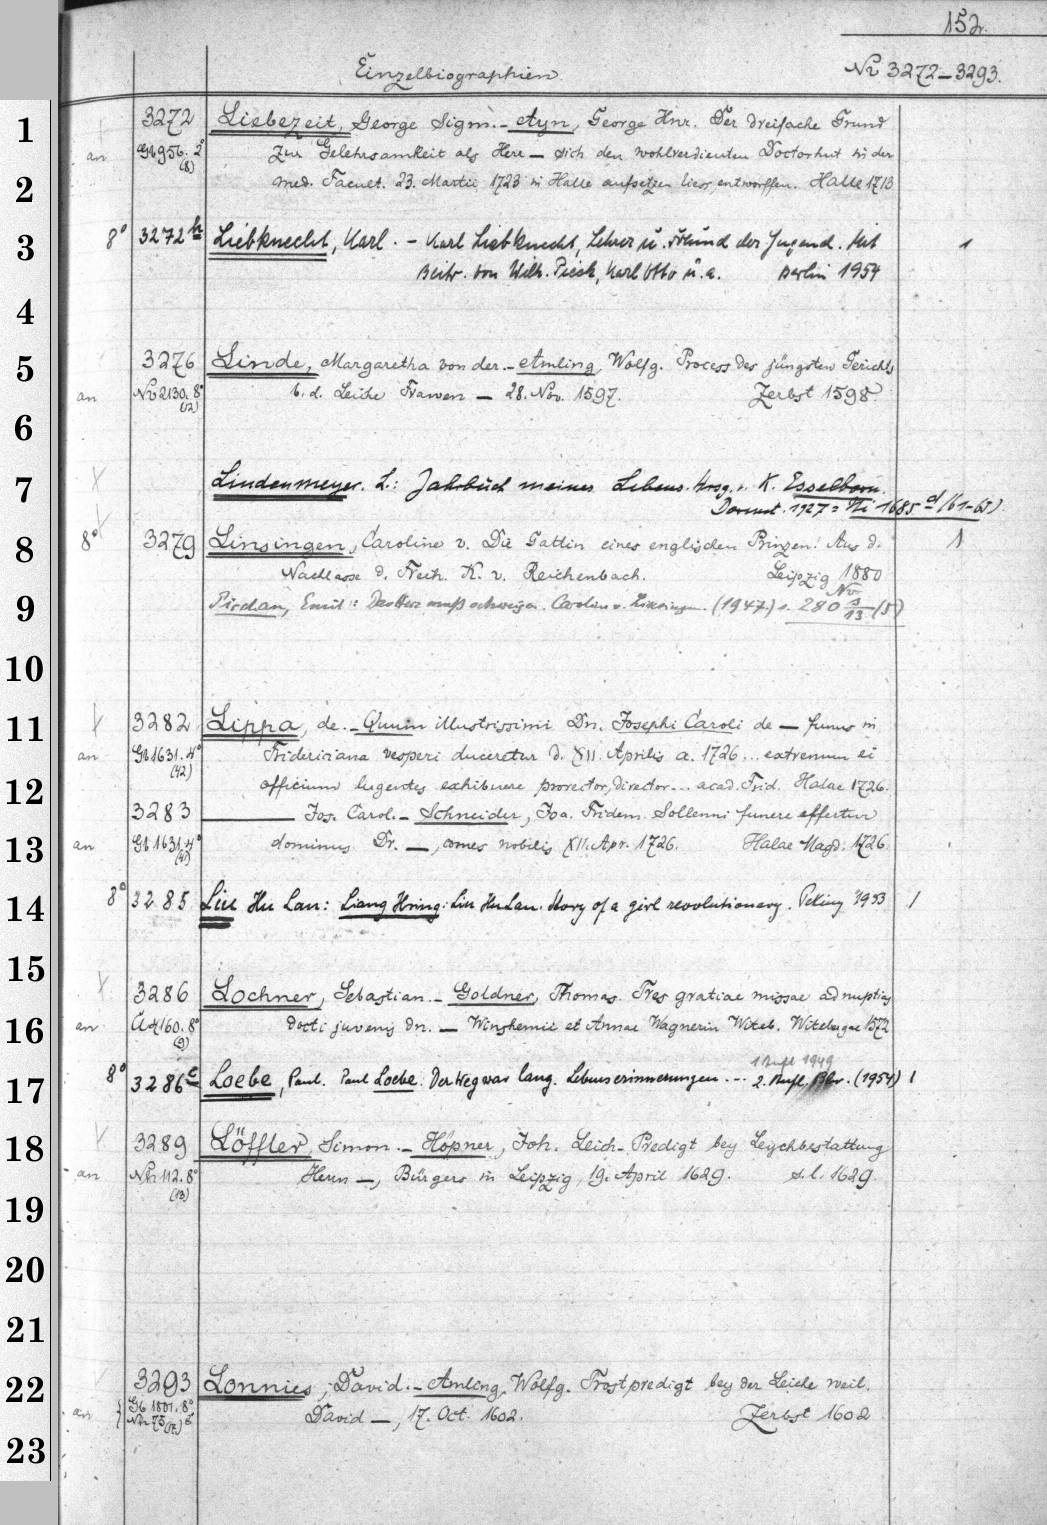 152.
Einzelbiographien.
No 3272–3293.
3272 Liebezeit, George Sigm. – Ayn, George Hnr. Der dreifache Grund
an Gb 956. 2° (8) zur Gelehrsamkeit als Herr — sich den wohlverdienten Doctorhut in der
med. Facult. 23. Martii 1723 in Halle aufsetzen liess, entworffen. Halle 1713
8° 3272 h Liebknecht, Karl. – Karl Liebknecht, Lehrer u. Freund der Jugend. Mit 1
Beitr. von Wilh. Pieck, Karl Otto u. a. Berlin 1954
3276 Linde, Margaretha von der. – Amling, Wolfg. Process des jüngsten Gerichts
an No 2130. 8° (12) b. d. Leiche Frawen — 28. Nov. 1597. Zerbst 1598.
Lindenmeyer. L.: Jahrbuch meines Lebens. Hrsg. v. K. Esselborn.
Darmst. 1927 = Ni 1685 d (61-65)
8° 3279 Linsingen, Caroline v. Die Gattin eines englischen Prinzen. Aus d. 1
Nachlasse d. Freih. K. v. Reichenbach. Leipzig 1880
Pirchan, Emil: Das Herz muß schweigen. Caroline v. Linsingen. (1947) s. No 280 s/13 (5)
3282 Lippa, de. – Quum illustrissimi Dn. Josephi Caroli de — funus in
an Gb 1631. 4° (42) Fridericiana vesperi duceretur d. XII. Aprilis a. 1726... extremum ei
officium lugentes exhibuere prorector, director... acad. Frid. Halae 1726.
3283 — Jos. Carol. – Schneider, Joa. Fridem. Sollenni funere effertur
an Gb 1631. 4° (41) dominus Dr. —, comes nobilis XII. Apr. 1726. Halae Magd. 1726.
8° 3285 Liu Hu Lan: Liang Hsing: Liu Hu Lan. Story of a girl revolutionary. Peking 1953 1
3286 Lochner, Sebastian. – Goldner, Thomas. Tres gratiae missae ad nuptias
an 160. 8° (9) docti juvenis dn. — Winshemii et Annae Wagnerin Witeb. Witebergae 1572
1 Aufl 1949
8° 3286 c Loebe, Paul. Paul Loebe: Der Weg war lang. Lebenserinnerungen. .. 2. Aufl. Bln. (1954) 1
3289 Löffler, Simon. – Höpner, Joh. Leich-Predigt bey Leychbestattung
an Nh 112. 8° (13) Herrn —, Bürgers in Leipzig, 19. April 1629. s. l. 1629.
3293 Lonnies, David. – Amling, Wolfg. Trostpredigt bey der Leiche weil.
an Gb 1801. 8° David —, 17. Oct. 1602. Zerbst 1602
1
2
3
4
5
6
7
8
9
10
11
12
13
14
15
16
17
18
19
20
21
22
23